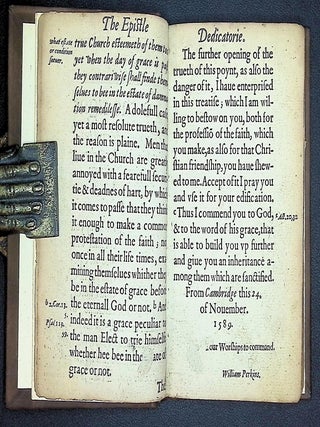 The Epistle
what estate or condition soever.
true Church esteemeth of them
yet when the day of grace is past
they contrariwise shall finde them
selues to bee in the estate of damna
tion remedilesse. A dolefull case,
yet a most resolute trueth, and
the reason is plaine. Men that
liue in the Church are greatly
annoyed with a fearefull securi
tie & deadnes of hart, by which
it comes to passe that they think
it enough to make a common
protestation of the faith; not
once in all their life times, exa
mining themselues whither they
be in the estate of grace before
b 2.Cor.13.
5.
the eternall God or not. b And
indeed it is a grace peculiar to
Psal 119.
59.
the man Elect to trie himselfe
whether hee bee in the estate of
grace or not.
The
Dedicatorie.
The further opening of the
trueth of this poynt, as also the
danger of it, I haue enterprised
in this treatise; which I am wil-
ling to bestow on you, both for
the professiō of the faith, which
you make, as also for that Chri
stian friendship, you haue shew-
ed to me. Accept of it I pray you
and vse it for your edification.
c Thus I commend you to God,
c Act.20,32
& to the word of his grace, that
is able to build you vp further
and giue you an inheritance a-
mong them which are sanctified.
From Cambridge this 24,
of Nouember.
1589.
our Worships to command.
William Perkins.